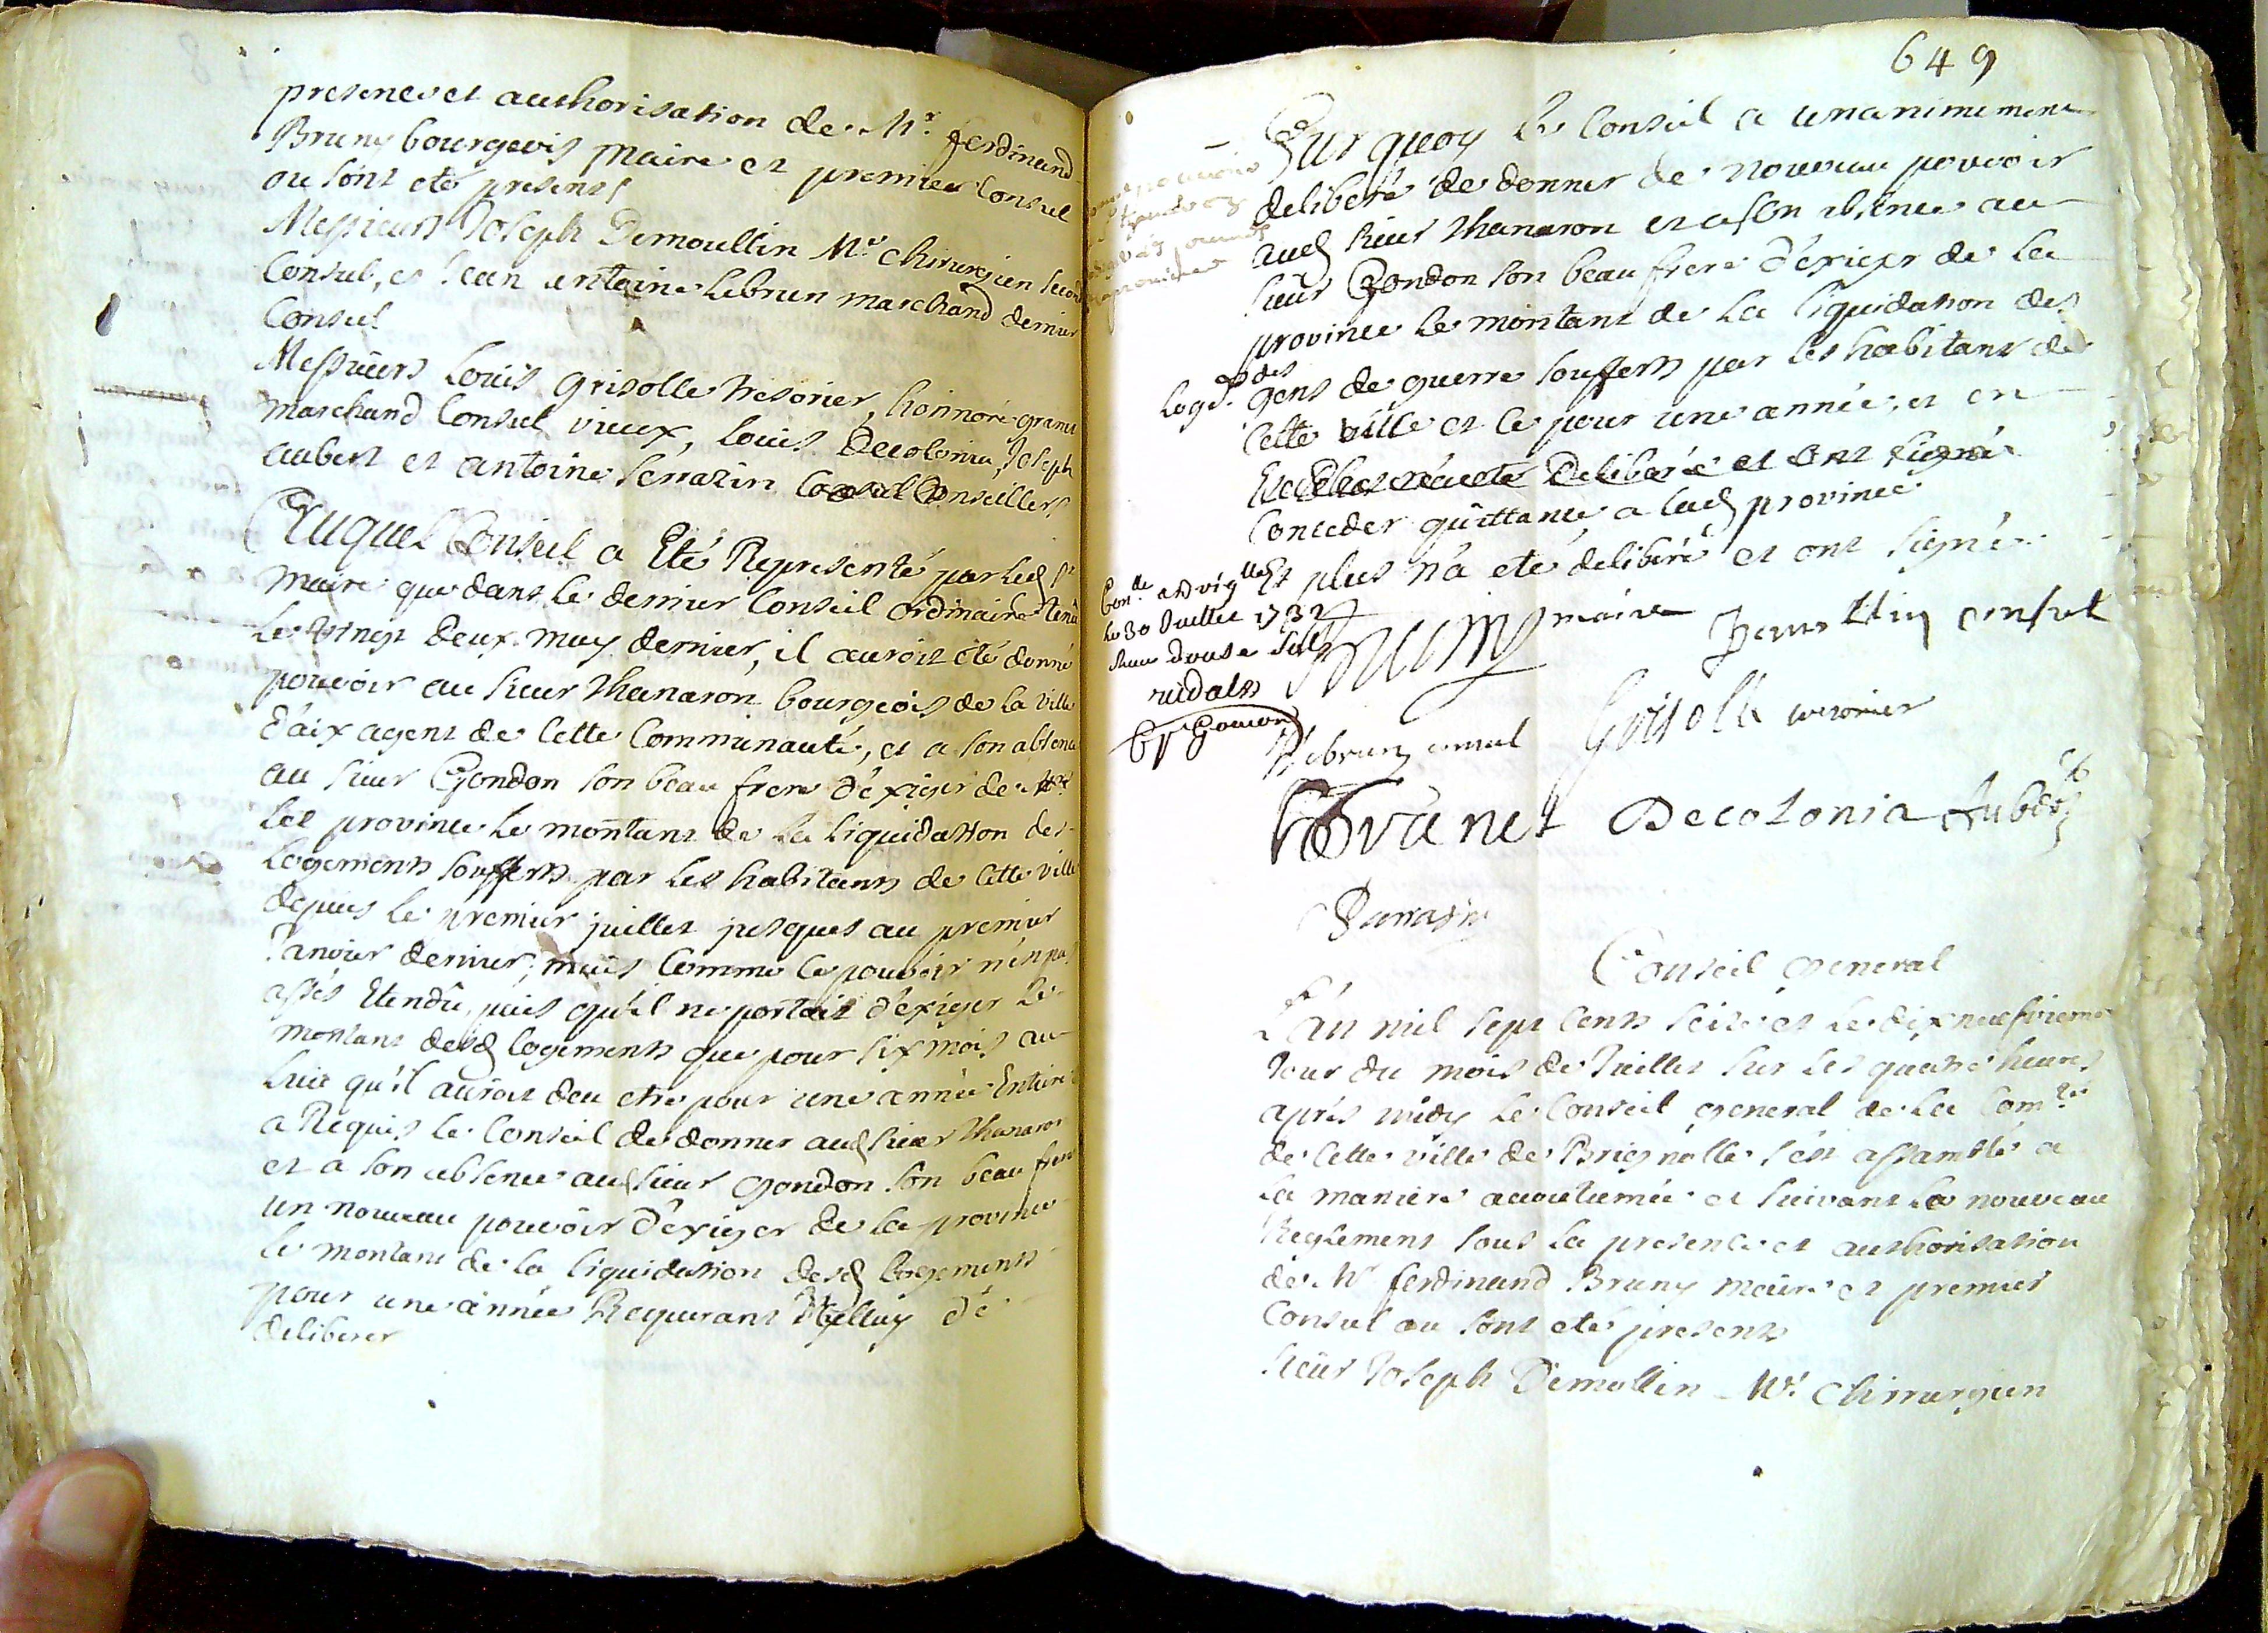 presence et authorisation de Mr. ferdinand
Bruny bourgeois maire et premier Consul
ou sont eté presents
Messieurs Joseph Demoultin Me. chirurgien second
Consul, et Jean antoine Lebrun marchand dernier
Consul
Messieurs Louis Grisolle tresorier, honnoré granet
marchand Consul vieux, Louis Decolonia, Joseph
aubert et antoine serrazin Conseillers
Auquel Conseil a Eté Representé par led sr
maire que dans le dernier Conseil ordinaire tenu
Le vingt deux may dernier, il auroit été donné
pouvoir au sieur thanaron bourgeois de la ville
d'aix agent de Cette Communauté, et a son absence
au sieur Gondon son beau frere d'exiger de
La province le montant de la liquidation des
Logements soufferts par les habitants de Cette ville
depuis le premier juillet jusques au premier
Janvier dernier, mais Comme le pouvoir n'est pas
assés Etendû, puis qu'il ne portait d'exiger le
montant desd logements que pour six mois au
Lieu qu'il auroit deu etre pour une année Entiere
a Requis le Conseil de donner aud sieur thanaron
et a son absence aud sieur Gondon son beau frere
un nouveau pouvoir d'exiger de la province
le montant de la liquidation desd logements
pour une année Requerant dy
deliberer
649
Sur quoy le Conseil a unanimement
deliberé de donner de nouveau pouvoir
aud sieur thanaron et a son absence au
sieur Gondon son beau frere d'exiger de la
province le montant de la liquidation des
logt. des
gens de guerre soufferts par les habitants de
Cette ville et ce pour une année, et en
Deliberé et ont signé
Conceder quittance a lad province
Et plus n'a eté deliberé et ont signé
le 30 Juillet 1732
douse sols
vidals
Bruny maire Demoultin consul
Lebrun consul Grisolle tresorier
Granet Decolonia Aubert
Serrazin
Conseil general
L'an mil sept Cents seize et le dix neufvieme
Jour du mois de Juillet sur les quatre heures
aprés midy le Conseil general de la Comté
de Cette ville de Brignolle s'est assamblé a
la maniere acoutumée et suivant le nouveau
Reglement sous la presence et authorisation
de Mr ferdinand Bruny maire et premier
Consul ou sont eté presents
sieur Joseph Demollin Me. chirurgien